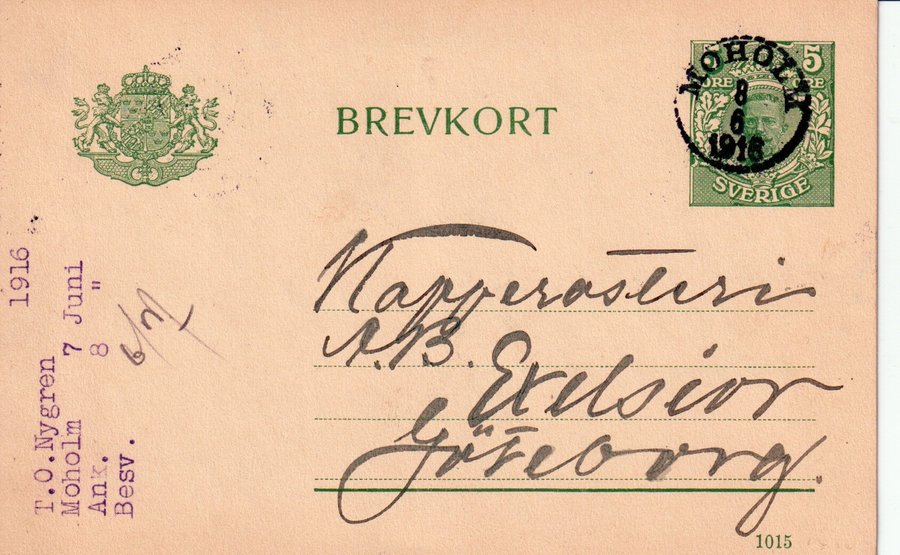 BREVKORT
5
ÖRE ÖRE
SVERIGE
MOHOLM
8
6
1916
Kapperosteri
A.B. Exelsior
Göteborg.
1916
T.O.Nygren
Moholm 7 Juni
Ank. 8 "
Besv.
1015